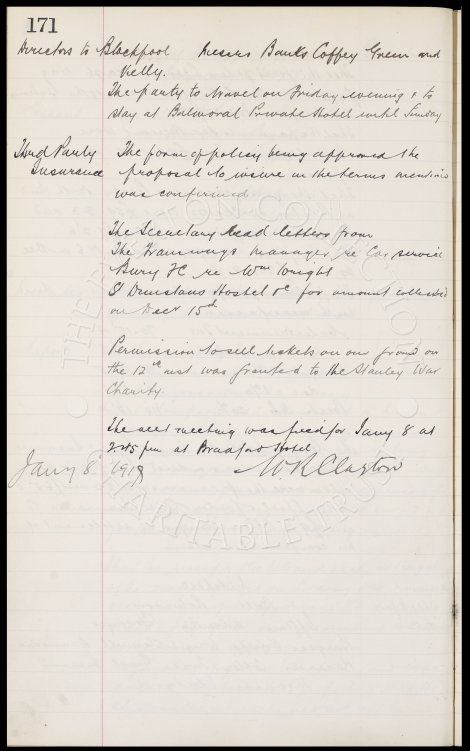 171
Directors to Blackpool Messrs Banks Coffey Green and
Kelly.
The party to travel on Friday evening & to
stay at Balmoral Private Hotel until Sunday
Third Party The form of policy being approved the
Insurance proposal to insure on the terms mentioned
was confirmed
The Secretary Read letters from
The Tramways manager re Car service
Bury FC re Wm Wright
St Dunstans Hostel re for amount collected
on Decr 15th
Permission to sell tickets on our ground on
the 12th inst was granted to the Stanley War
Charity.
The next meeting was fixed for Jany 8 at
2.45 pm at Bradford Hotel
Jany 8 1918 W R Clayton
THE EVERTON COLLECTION
CHARITABLE TRUST